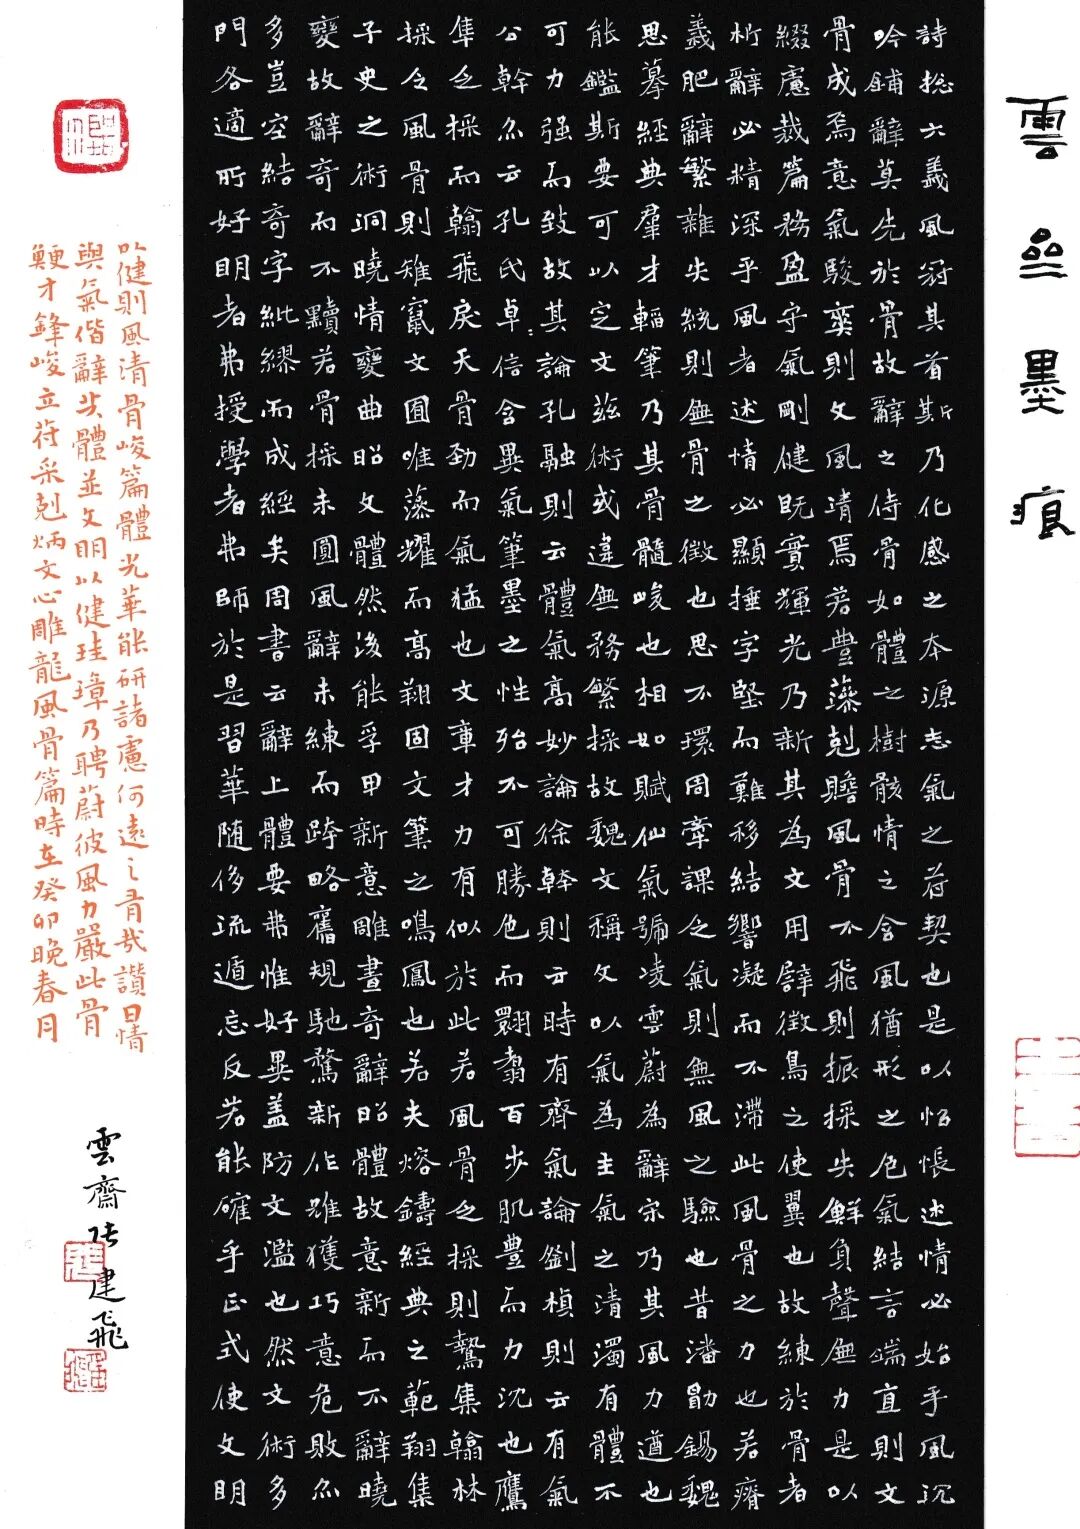 雲丝墨痕
詩捴六義風冠其首斯乃化感之本源志氣之符契也是以怊悵述情必始乎風沉
吟鋪辭莫先於骨故辭之侍骨如體之樹骸情之含風猶形之包氣結言端直則文
骨成焉意氣駿爽則文風清焉若豊藻剋贍風骨不飛則振採失鮮負聲無力是以
綴慮裁篇務盈守氣剛健既實輝光乃新其為文用譬徵鳥之使翼也故練於骨者
析辭必精深乎風者述情必顯捶字堅而難移結響凝而不滯此風骨之力也若瘠
義肥辭繁雜失統則無骨之徵也思不環周牽課乏氣則無風之驗也昔潘勖錫魏
思摹經典羣才韜筆乃其骨髓峻也相如賦仙氣號凌雲蔚為辭宗乃其風力遒也
能鑑斯要可以定文茲術或違無務繁採故魏文稱文以氣為主氣之清濁有體不
可力强而致故其論孔融則云體氣高妙論徐幹則云時有齊氣論劉楨則云有氣
公幹亦云孔氏卓:信含異氣筆墨之性殆不可勝色而翾翥百步肌豊而力沉也鷹
隼乏採而翰飛戾天骨勁而氣猛也文章才力有似於此若風骨乏採則鷙集翰林
採乏風骨則雉竄文囿唯藻耀而高翔固文筆之鳴鳳也若夫熔鑄經典之範翔集
子史之術洞曉情變曲昭文體然後能孚甲新意雕畫奇辭昭體故意新而不辭曉
變故辭奇而不黷若骨採未圓風辭未練而跨略舊規馳騖新作雖獲巧意危敗亦
多豈空結奇字紕繆而成經矣周書云辭上體要弗惟好異盖防文濫也然文術多
門各適所好明者弗授學者弗師於是習華随侈流遁忘反若能確乎正式使文明
以健則風清骨峻篇體光華能研諸慮何遠之有哉讚曰情
與氣偕辭共體並文明以健珪璋乃聘蔚彼風力嚴此骨
鯁才鋒峻立符采剋炳文心雕龍風骨篇時在癸卯晚春月
雲齋張建飛